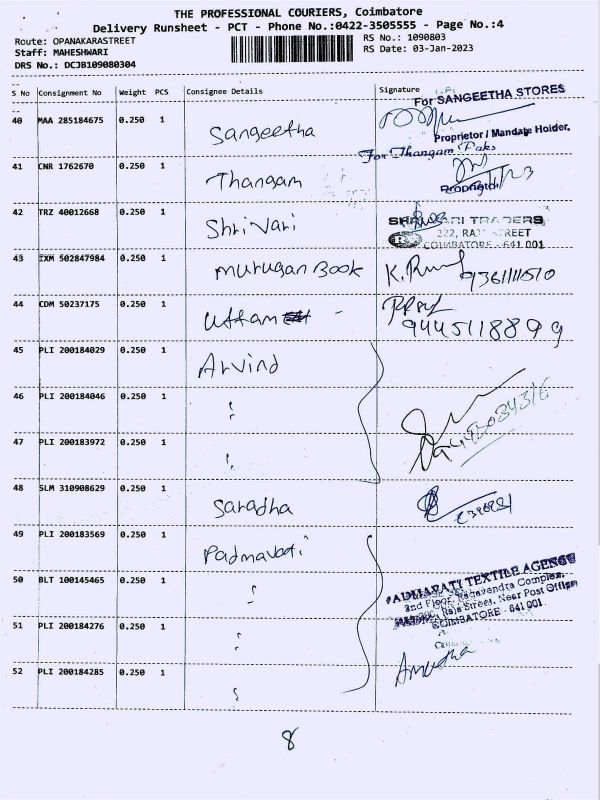 THE PROFESSIONAL COURIERS, Coimbatore
Delivery Runsheet - PCT - Phone No.:0422-3505555 - Page No.:4
Route: OPANAKARASTREET
Staff: MAHESHWARI
DRS No.: DCJB109080304
RS No.: 1090803
RS Date: 03-Jan-2023
S No Consignment No Weight PCS Consignee Details Signature
For SANGEETHA STORES
40 MAA 285184675 0.250 1 Sangeetha
Proprietor / Mandate Holder.
For Thangam Paks
41 CNR 1762670 0.250 1 Thangam
Proprietor
42 TRZ 40012668 0.250 1 Shri Vari
SHRI VARI TRADERS
222, RAJA STREET
COIMBATORE - 641 001
43 IXM 502847984 0.250 1 murugan Book K. 9361111510
44 CDM 50237175 0.250 1 Uttam 9445118899
45 PLI 200184029 0.250 1 Arvind
46 PLI 200184046 0.250 1 "
47 PLI 200183972 0.250 1 "
48 SLM 310908629 0.250 1 Saradha
49 PLI 200183569 0.250 1 Padmavati
50 BLT 100145465 0.250 1 "
PADMAVATI TEXTILE AGENCY
2nd Floor, Raghavendra Complex,
Raja Street, Near Post Office
COIMBATORE - 641 001
51 PLI 200184276 0.250 1 "
52 PLI 200184285 0.250 1 "
8